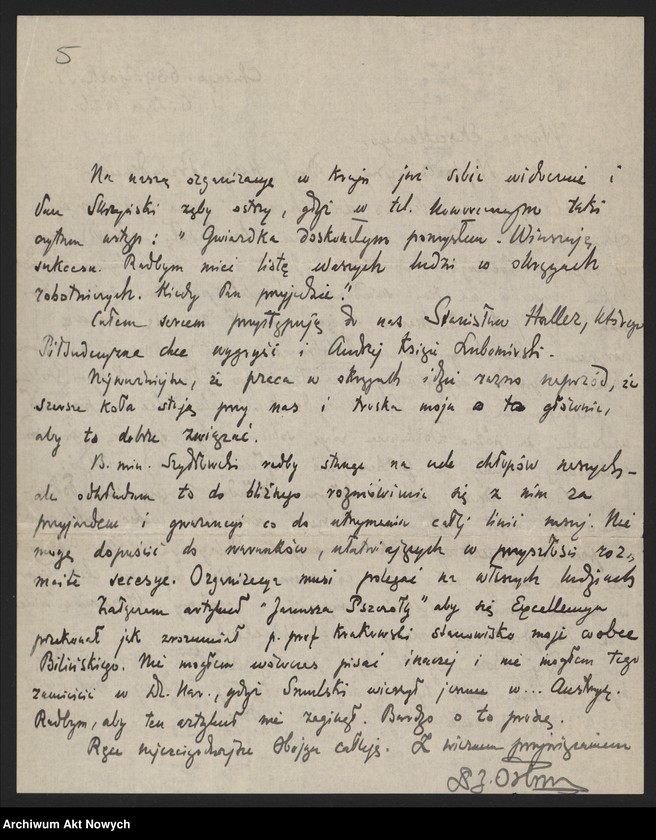 5
Na naszą organizację w kraju już sobie widocznie i
Pan Skrzyński zęby ostrzy, gdyż w tel. noworocznym taki
czytam wstęp: "Gwiazdka doskonałym pomysłem. Winszuję
sukcesu. Radbym mieć listę Waszych ludzi w okręgach
robotniczych. Kiedy Pan przyjedzie?"
Całem sercem przystępują do nas Stanisław Haller, którego
Piłsudczyzna chce wygryźć i Andrzej Książę Lubomirski.
Najważniejsze, że praca w okręgach idzie raźno naprzód, że
szersze koła stają przy nas i troska moja o to głównie,
aby to dobrze związać.
B. min. Szydłowski radby stanąć na czele chłopów naszych -
ale odkładam to do bliższego rozmówienia się z nim za
przyjazdem i gwarancji co do utrzymania całej linii naszej. Nie
mogę dopuścić do warunków, ułatwiających w przyszłości roz-
maite secesye. Organizacya musi polegać na własnych ludziach
Załączam artykuł "Janusza Pszczoły" aby się Excellencya
przekonał jak zrozumiał p. prof Krakowski stanowisko moje wobec
Bilińskiego. Nie mogłem wówczas pisać inaczej i nie mogłem tego
zamieścić w Dz. Nar., gdyż Smulski wierzył jeszcze w... Austryę.
Radbym, aby ten artykuł nie zaginął. Bardzo o to proszę.
Ręce najczcigodniejsze Obojga całuję. Z wiernem przywiązaniem
Archiwum Akt Nowych